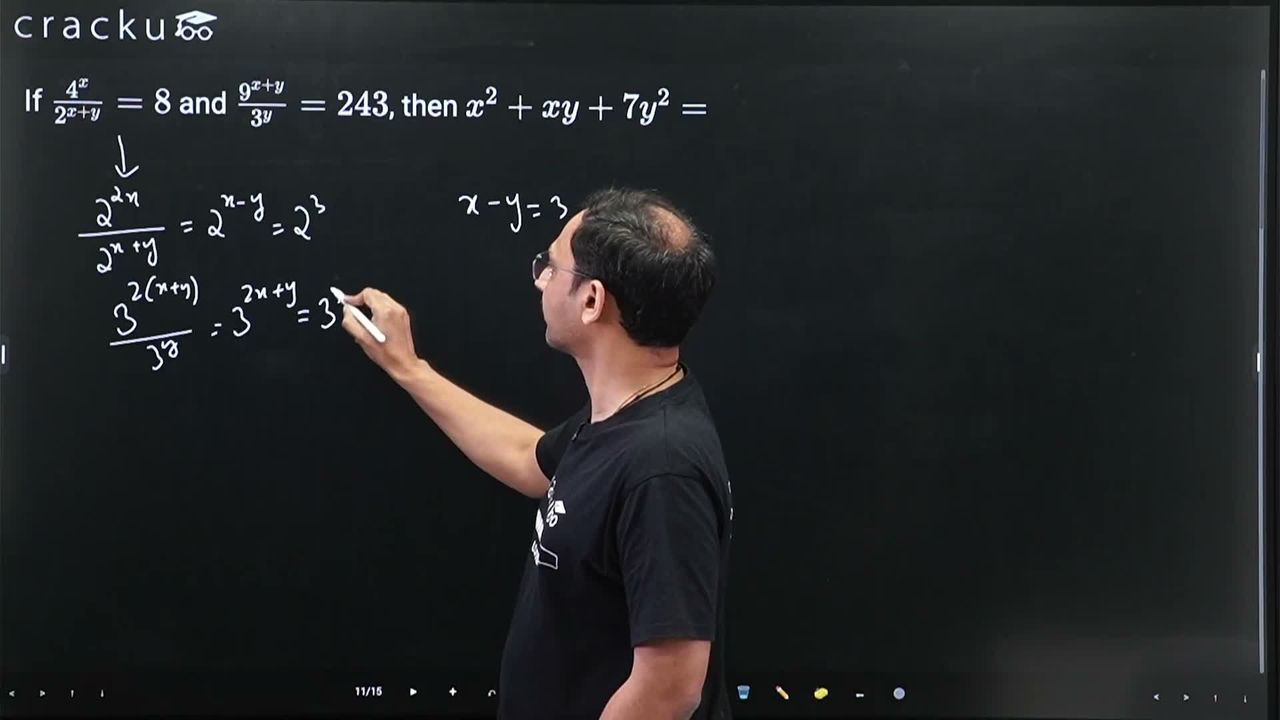 cracku
If 4^x/2^{x+y} = 8 and 9^{x+y}/3^y = 243, then x² + xy + 7y² =
2^{2x}/2^{x+y} = 2^{x-y} = 2^3
x - y = 3
3^{2(x+y)}/3^y = 3^{2x+y} = 3
11/15